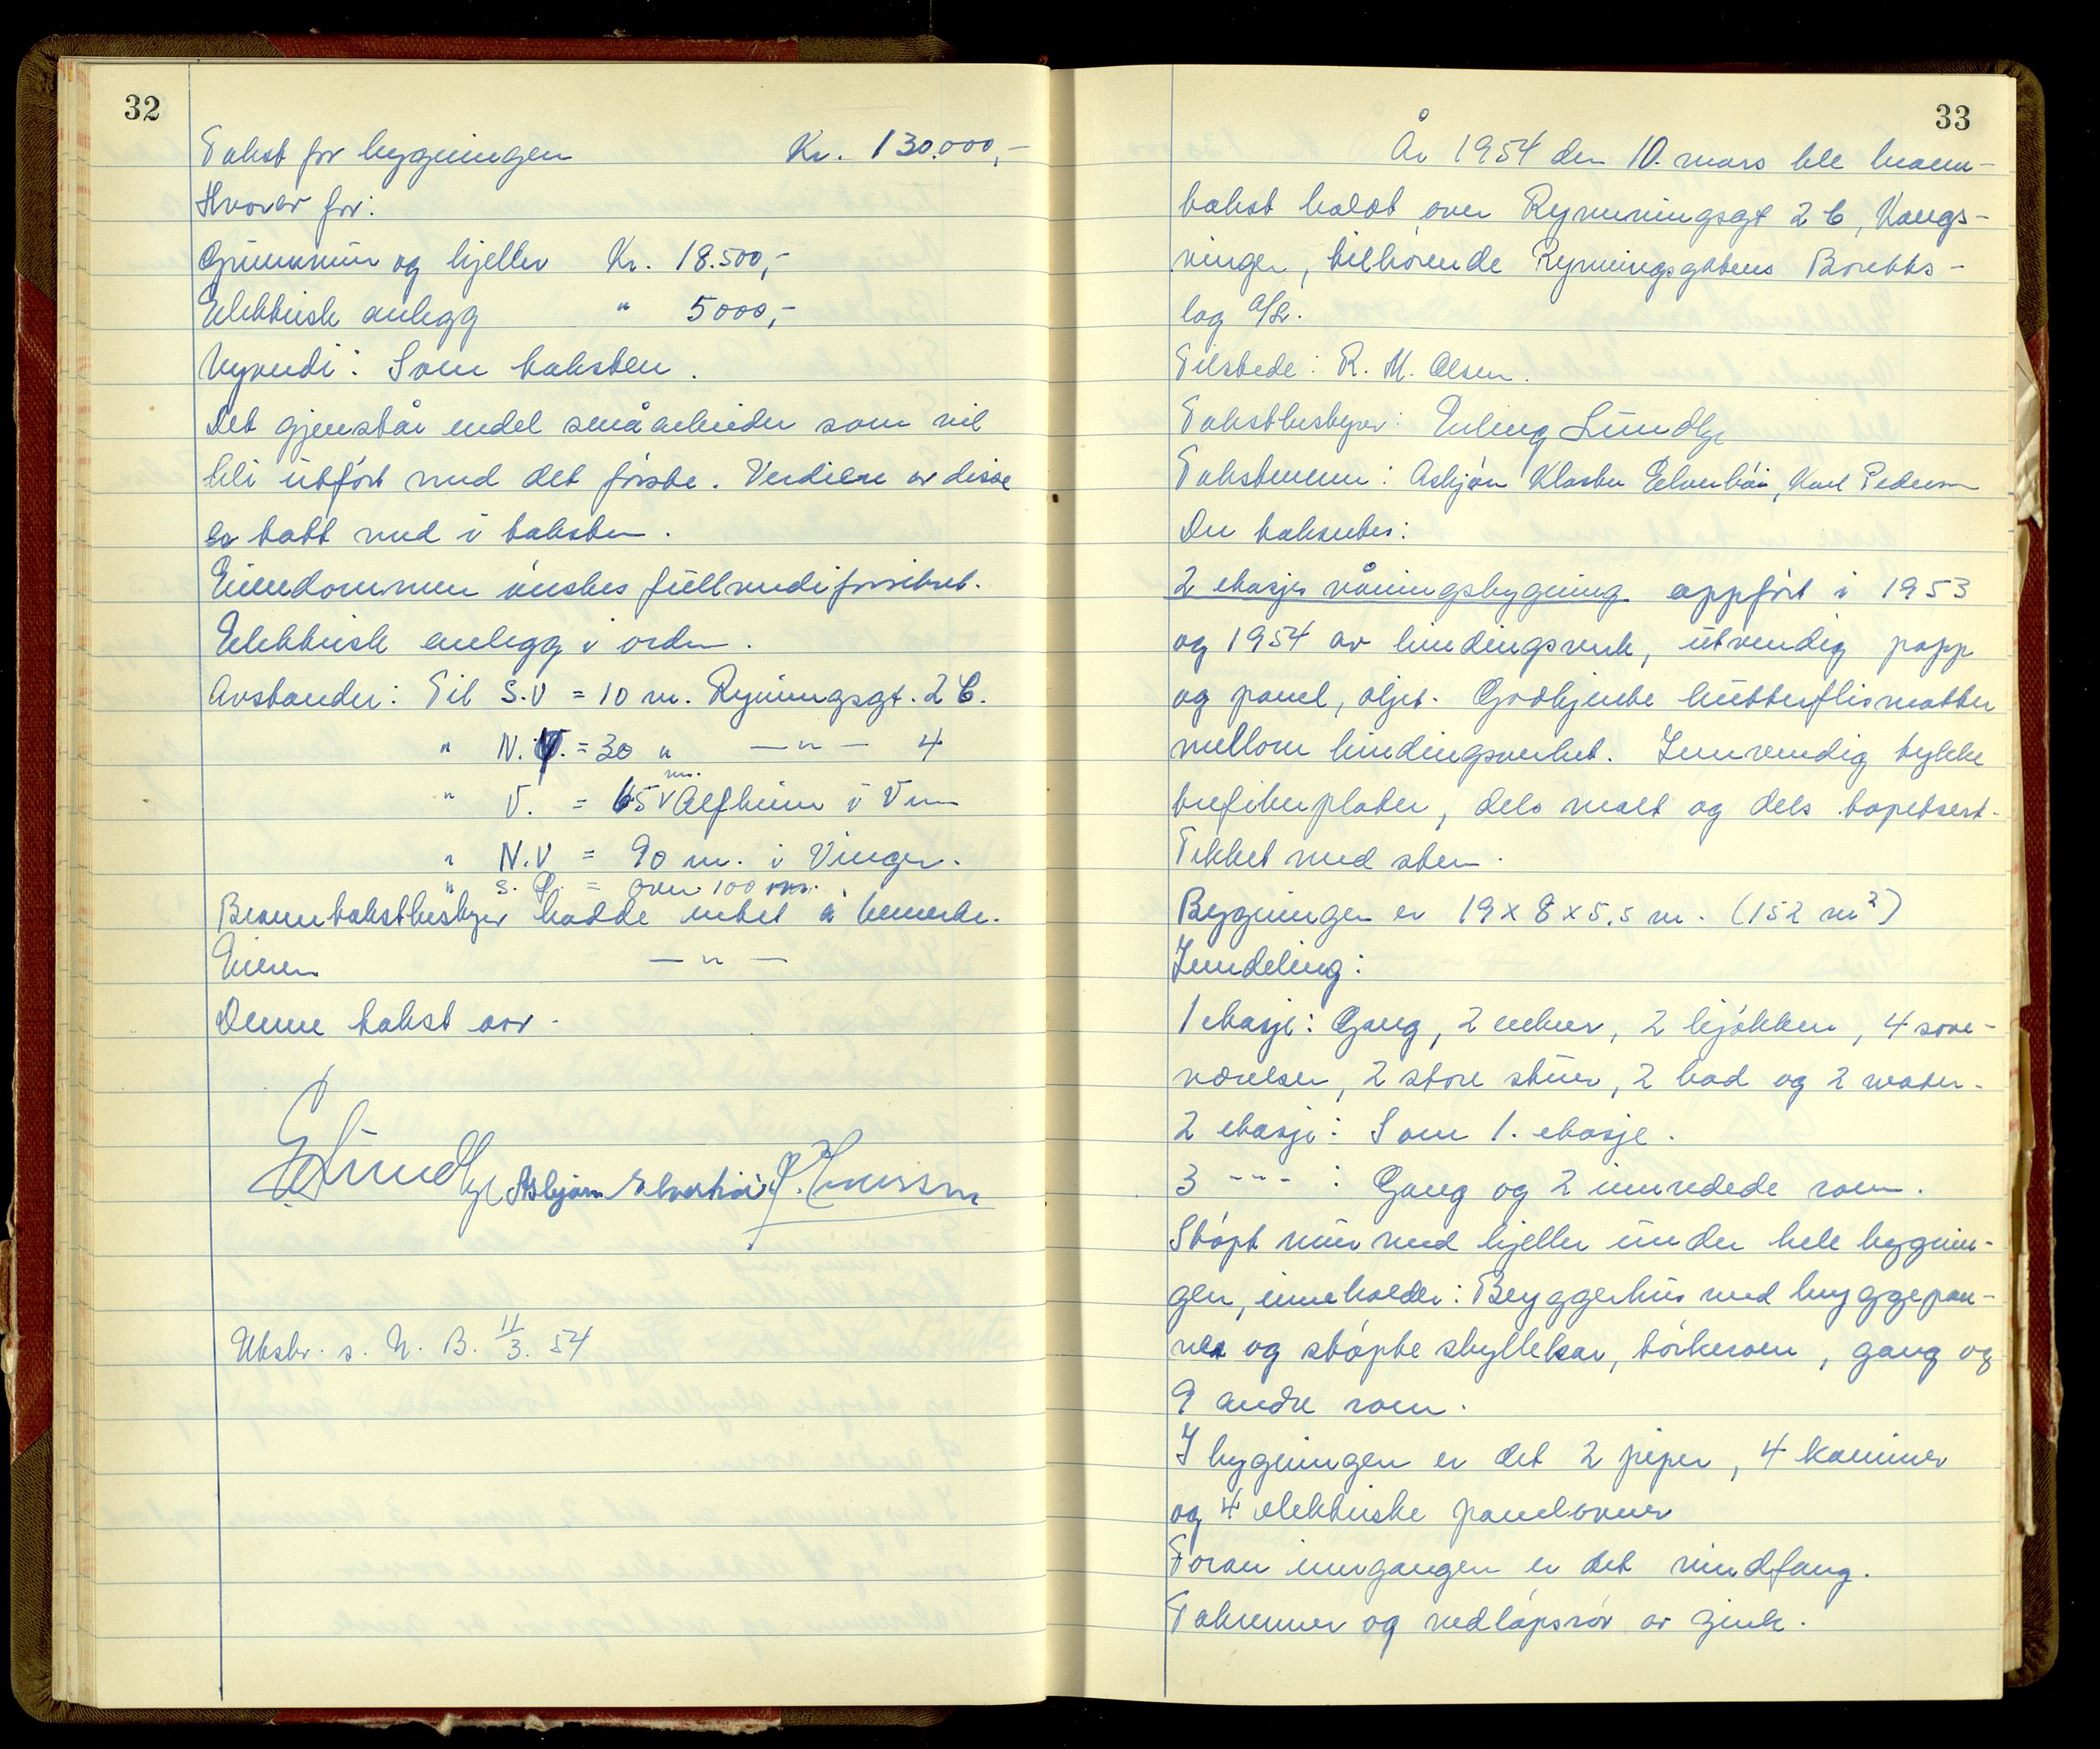 32
Takst for bygningen Kr. 130.000,-
Hvorav for:
Grunnmur og kjeller Kr. 18.500,-
Elektrisk anlegg " 5000,-
Nyverdi: Som taksten.
Det gjenstår endel småarbeider som vil
bli utført med det første. Verdien av disse
er tatt med i taksten.
Eiendommen ønskes fullverdiforsikret.
Elektrisk anlegg i orden.
Avstander: Til S.V = 10 m. Rynningsgt. 2 C.
" N.V. = 30 " —"— 4
" V. = 65 m. Alfheim i Vin
" N.V = 90 m. i Vinger.
" S. Ø. = over 100 m.
Branntakstbestyrer hadde intet å bemerke.
Eieren —"—
Denne takst avr.
E Lundby Asbjørn Elverhøi
Utskr. s. N. B. 11/3. 54
33
År 1954 den 10. mars ble brann-
takst holdt over Rynningsgt 2 C, Kongs-
vinger, tilhørende Rynningsgatens Boretts-
lag A/L.
Tilstede: R. M. Olsen.
Takstbestyrer: Erling Lundby
Takstmenn: Asbjørn Kloster Elverhøi, Karl Pedersen
Der takseres:
2 etasjes våningsbygning oppført i 1953
og 1954 av bindingsverk, utvendig papp
og panel, oljet. Godkjente kutterflismatter
mellom bindingsverket. Innvendig tykke
trefiberplater, dels malt og dels tapetsert.
Tekket med sten.
Bygningen er 19 x 8 x 5,5 m. (152 m²)
Inndeling:
1 etasje: Gang, 2 entreer, 2 kjøkken, 4 sove-
værelser, 2 store stuer, 2 bad og 2 water.
2 etasje: Som 1. etasje.
3 --- : Gang og 2 innredede rom.
Støpt mur med kjeller under hele bygnin-
gen, inneholder: Bryggerhus med bryggepan-
ner og støpte skyllekar, tørkerom, gang og
9 andre rom.
I bygningen er det 2 piper, 4 kaminer
og 4 elektriske panelovner
Foran inngangen er det vindfang.
Takrenner og nedløpsrør av zink.